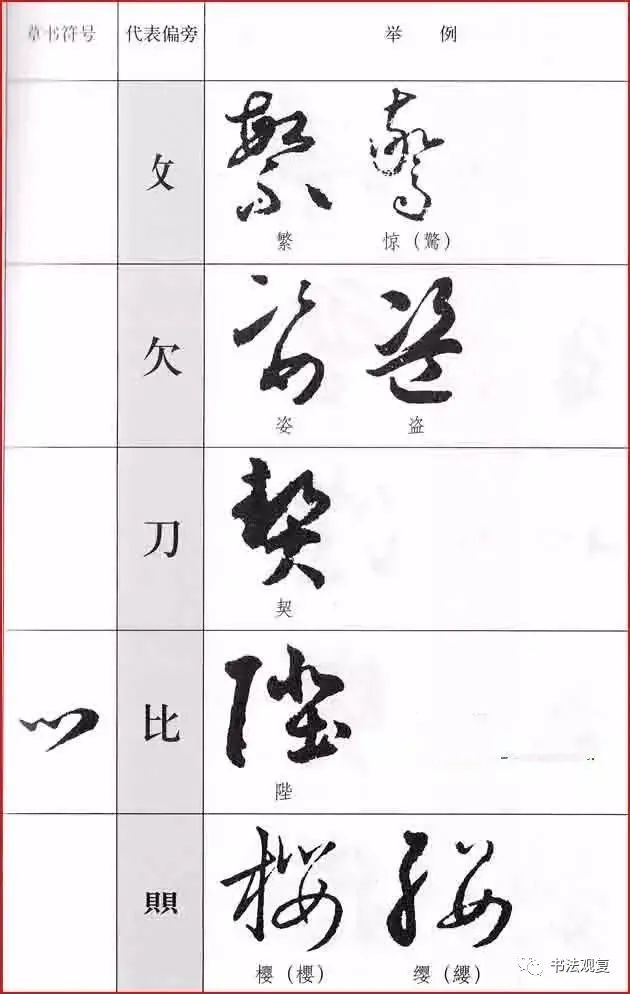 草书符号 代表偏旁 举 例
攵
繁 惊（驚）
欠
姿 盗
刀
契
比
陛
賏
樱（櫻） 缨（纓）
书法观复